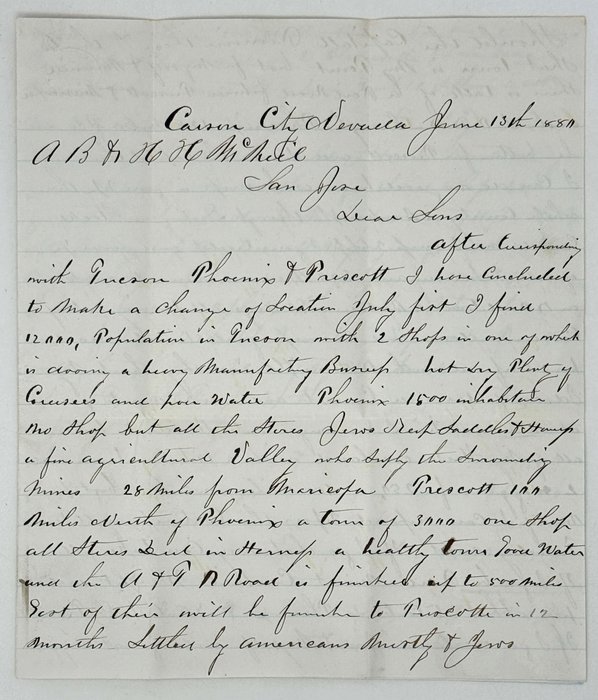 Carson City Nevada June 13th 1880
A B & H H McNeil
San Jose
Dear Sons
after Corisponding
with Tucson Phoenix & Prescott I have Concluded
to make a change of Location July first I find
12000, Population in Tucson with 2 Shops in one of which
is dooing a heavy Manufactory Business hot dry Plenty of
and poor Water Phoenix 1500 inhabitans
no Shop but all the Stores Jews Keep Saddles & Harness
a fine agricultural Valley who Suply the Surounding
Mines 28 Miles from Maricopa Prescott 100
Miles North of Phoenix a town of 3000 one Shop
all Stores Deel in Harness a healthy town Good Water
and the A & P R Road is finished up to 500 miles
East of their will be finished to Prescott in 12
months Settled by americans Mostly & Jews